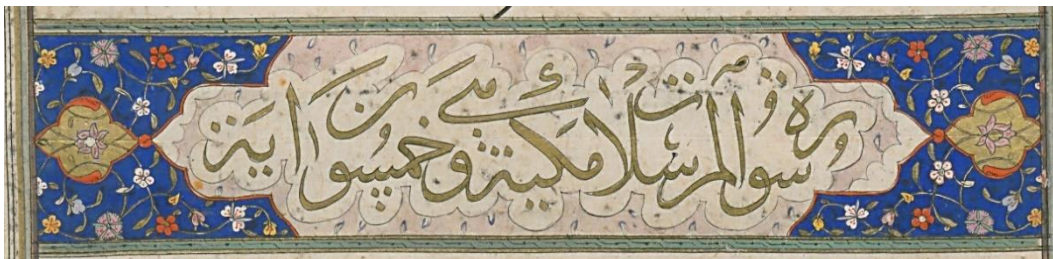 سورة والمرسلات مكية وهي خمسون اية